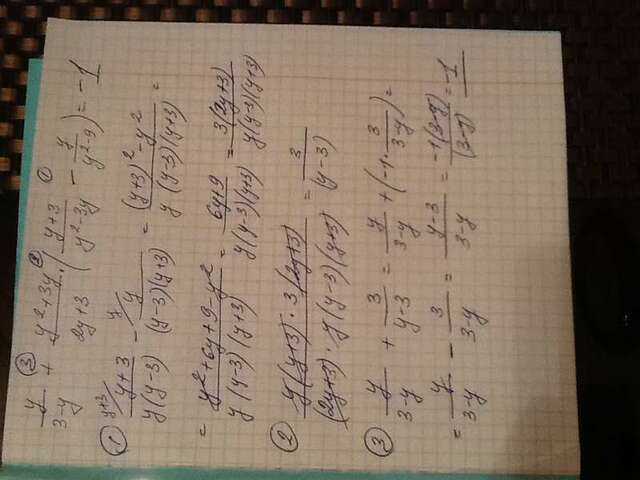 y/(3-y) +③ (y²+3y)/(2y+3) ·② ((y+3)/(y²-3y) -① y/(y²-9)) = -1
① (y+3)/(y(y-3)) - y/((y-3)(y+3)) = ((y+3)²-y²)/(y(y-3)(y+3)) =
= (y²+6y+9-y²)/(y(y-3)(y+3)) = (6y+9)/(y(y-3)(y+3)) = 3(2y+3)/(y(y-3)(y+3))
② (y(y+3)·3(2y+3))/((2y+3)·y(y-3)(y+3)) = 3/(y-3)
③ y/(3-y) + 3/(y-3) = y/(3-y) + (-1·3/(3-y)) =
= y/(3-y) - 3/(3-y) = (y-3)/(3-y) = -1(3-y)/(3-y) = -1